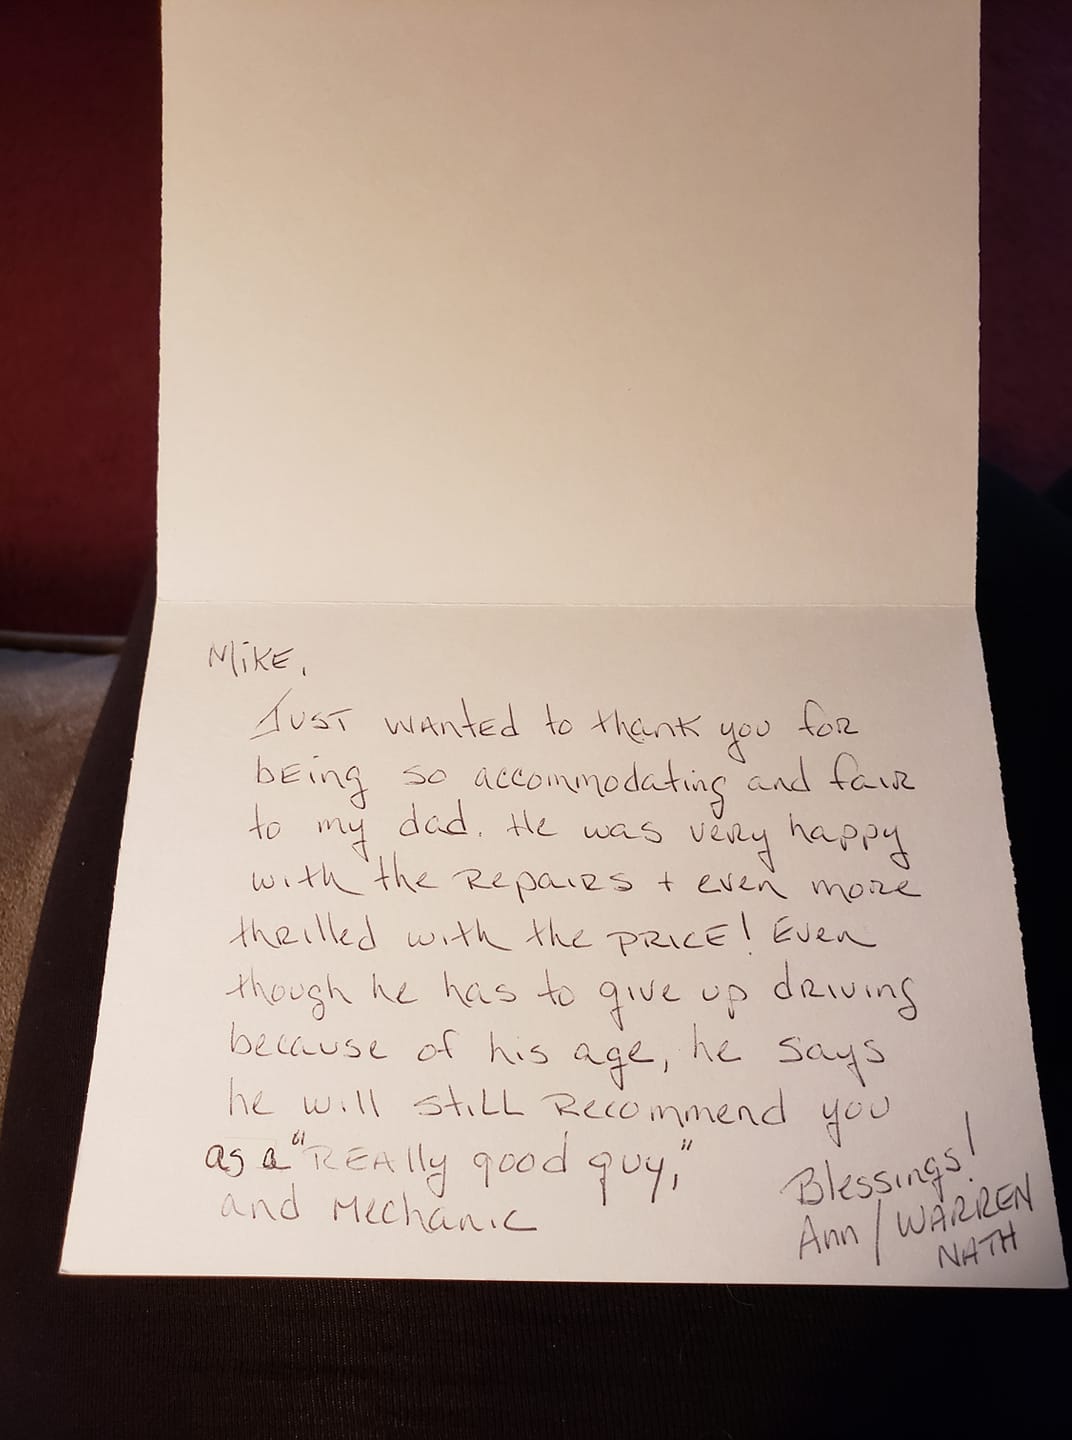 Mike,
Just wanted to thank you for
being so accommodating and fair
to my dad. He was very happy
with the repairs + even more
thrilled with the PRICE! Even
though he has to give up driving
because of his age, he says
he will still recommend you
as a "REALLY good guy,"
and Mechanic
Blessings!
Ann / WARREN
NATH